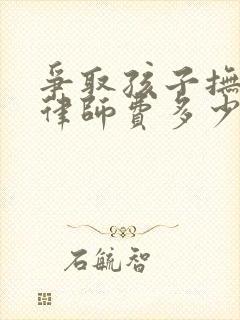 爭取孩子撫
律師費多少
石毓智